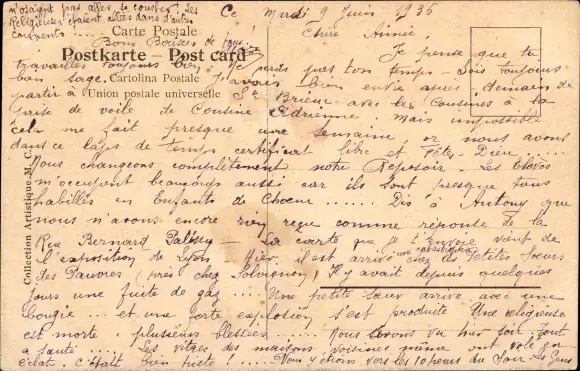 n'osaient pas aller se coucher. Les
Religieuses étaient allées dans d'autres
couvents ....
Bons Baisers de tous!
Ce Mardi 9 Juin 1936
Chère Aimée,
Carte Postale
Postkarte — Post card
Cartolina Postale
Union postale universelle
Collection Artistique M. C.
Je pense que tu
travailles toujours bien, ne perds pas ton temps - Sois toujours
bon sage. J'avais bien envie après demain de
partir à St Brieuc avec les Cousines à la
prise de voile de Cousine Adrienne. Mais impossible
cela me fait presque une semaine, or nous avons
dans ce laps de temps certificat libre et Fête-Dieu ....
Nous changeons complètement notre Reposoir. Les élèves
m'occupent beaucoup aussi car ils sont presque tous
habillés en Enfants de Choeur ..... Dis à Antony que
nous n'avons encore rien reçu comme réponse de la
Rue Bernard Palissy — La carte que je t'envoie vient de
l'exposition de Lyon Hier, il est arrivé un accident chez les Petites Soeurs
des Pauvres (près chez Solvignon) Il y avait depuis quelques
jours une fuite de gaz .... Une petite soeur arrive avec une
bougie ... et une forte explosion s'est produite Une religieuse
est morte, plusieurs blessées ..... Nous avons vu hier soir. Tout
a sauté .... Les vitres des maisons voisines même ont volé en
éclat. C'était bien triste! .... Nous y étions vers les 10 heures du soir. Les Gens